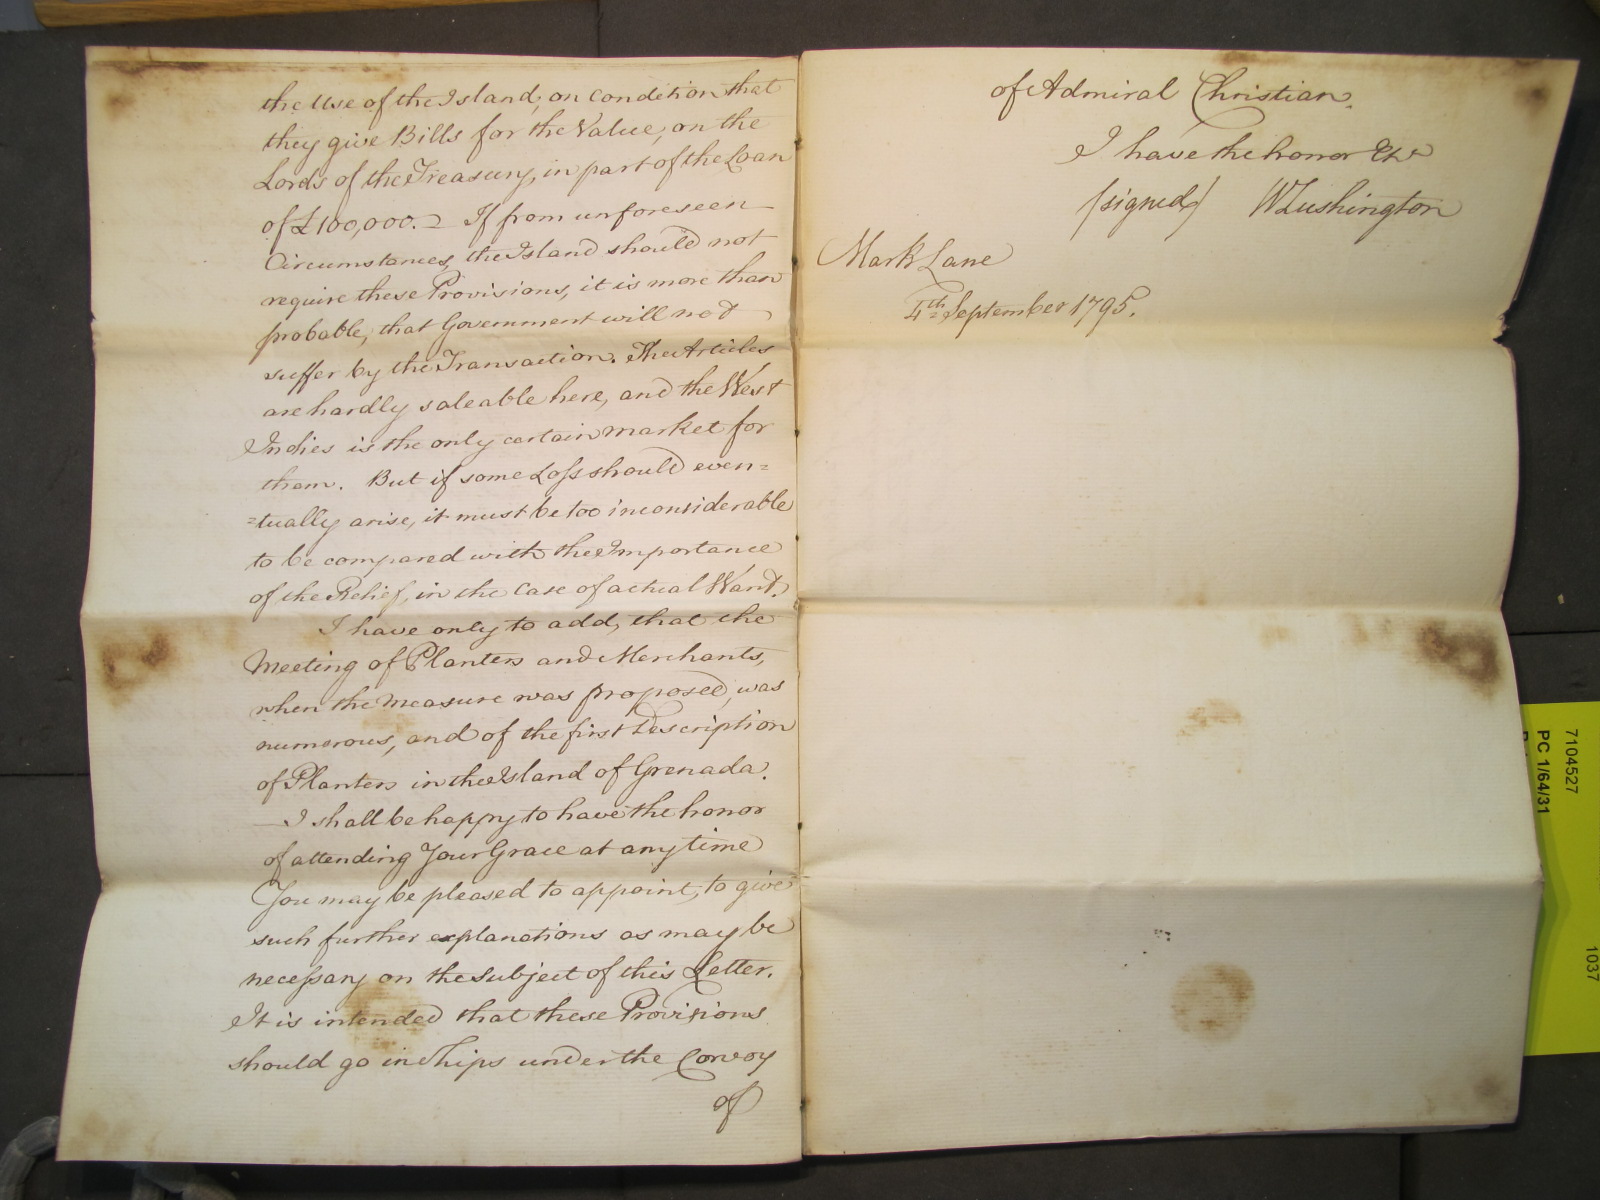 the Use of the Island, on condition that
they give Bills for the Value, on the
Lords of the Treasury, in part of the Loan
of £100,000.= If from unforeseen
Circumstances, the Island should not
require these Provisions, it is more than
probable, that Government will not
suffer by the Transaction. The Articles
are hardly saleable here, and the West
Indies is the only certain market for
them. But if some Loss should even=
=tually arise, it must be too inconsiderable
to be compared with the Importance
of the Relief, in the Case of actual Want.
I have only to add, that the
Meeting of Planters and Merchants,
when the Measure was proposed, was
numerous, and of the first Description
of Planters in the Island of Grenada.
I shall be happy to have the honor
of attending Your Grace at any time
You may be pleased to appoint, to give
such further explanations as may be
necessary on the Subject of this Letter.
It is intended that these Provisions
should go in Ships under the Convoy
of
of Admiral Christian.
I have the honor &c
(signed) W Lushington
Mark Lane
4th September 1795.
7104527
PC 1/64/31
1037